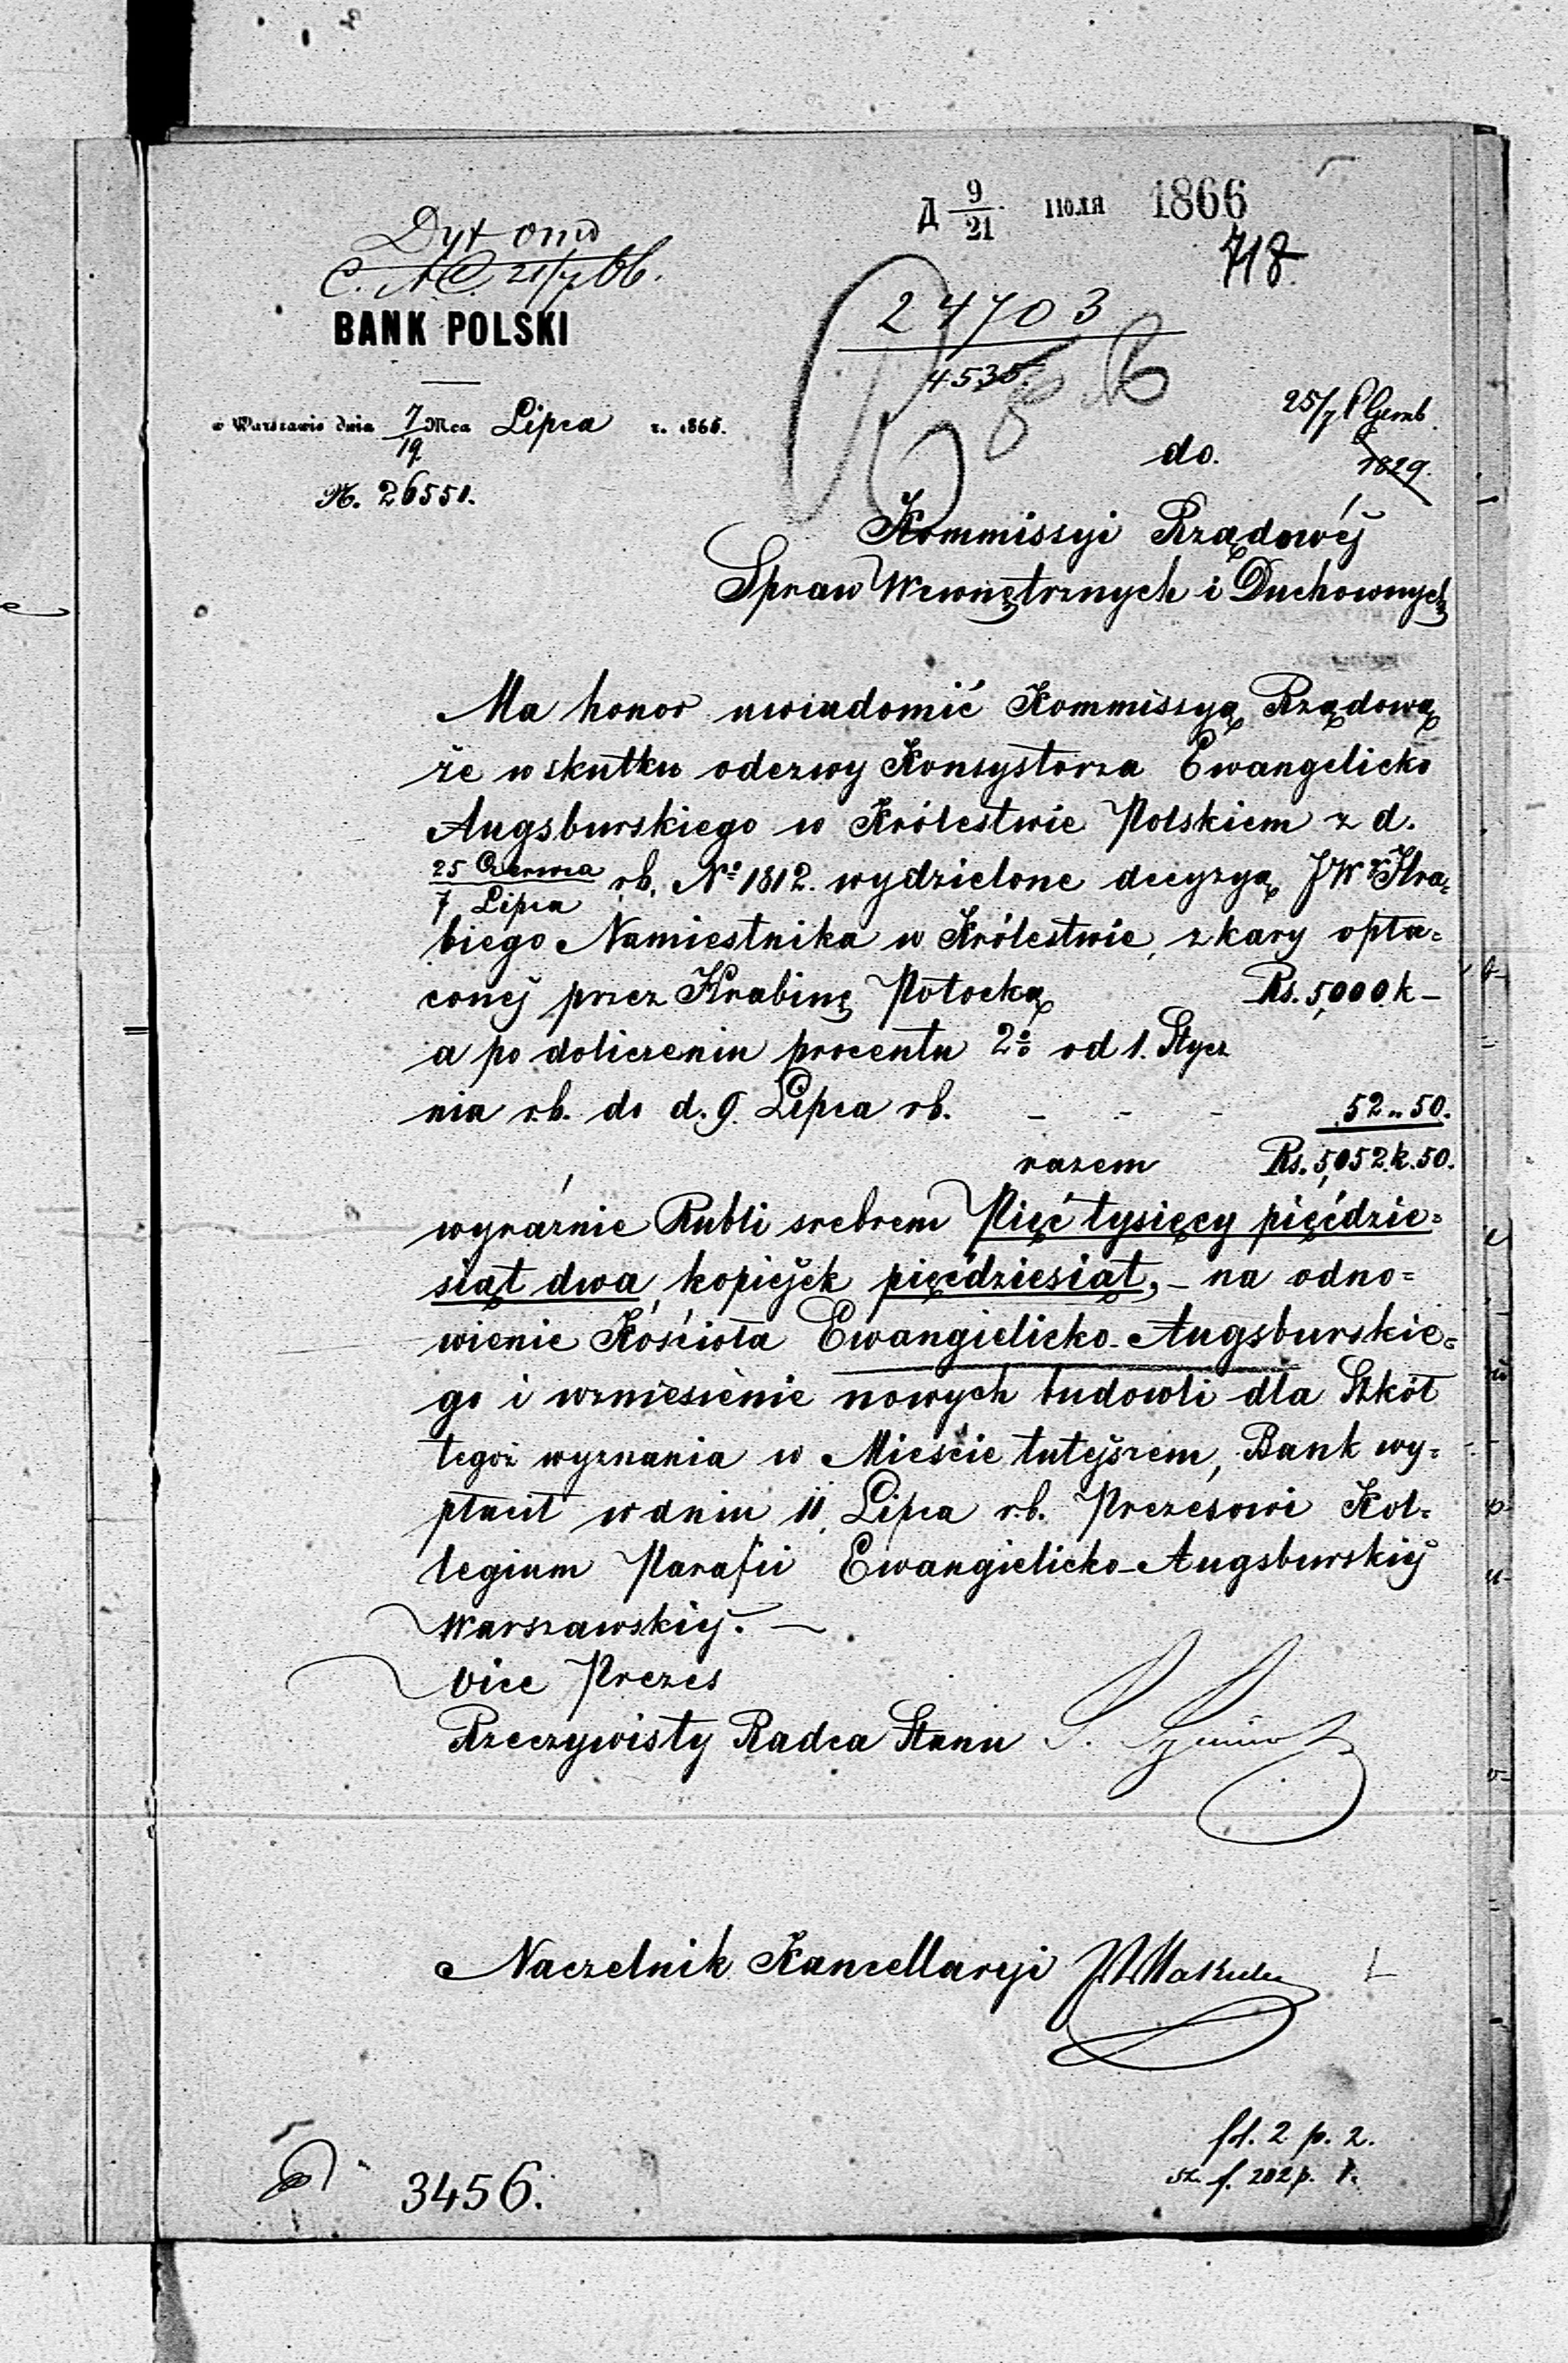 Д 9/21 ІЮЛЯ 1866
718.
C. 21/7 66.
24703
4535.
BANK POLSKI
w Warszawie dnia 7/19 Mca Lipca r. 1866.
N. 26551.
25/7
1829.
do.
Kommissyi Rządowéj
Spraw Wewnętrznych i Duchownych
Ma honor uwiadomić Kommissyą Rządową
że w skutku odezwy Konsystorza Ewangelicko
Augsburskiego w Królestwie Polskiem z d.
25 Czerwca / 7 Lipca rb. Nº 1812. wydzielone decyzyą JWº Hra=
biego Namiestnika w Królestwie, z kary opła=
conéj przez Hrabinę Potocką Rs. 5,000 k –
a po doliczeniu procentu 2% od 1. Stycz
nia r.b. do d. 9. Lipca rb. – – – 52 „ 50.
razem Rs. 5,052 k. 50.
wyraźnie Rubli srebrem Pięć tysięcy pięćdzie=
siąt dwa, kopiejek pięćdziesiąt, – na odno=
wienie Kościoła Ewangielicko-Augsburskie=
go i wzniesienie nowych budowli dla Szkół
tegoż wyznania w Mieście tutejszem, Bank wy=
płacił w dniu 11. Lipca r.b. Prezesowi Kol=
legium Parafii Ewangielicko-Augsburskiéj
Warszawskiéj. –
Vice Prezes
Rzeczywisty Radca Stanu
Naczelnik Kancellaryi
fol. 2 p. 2.
sz. f. 202 p. 1.
3456.